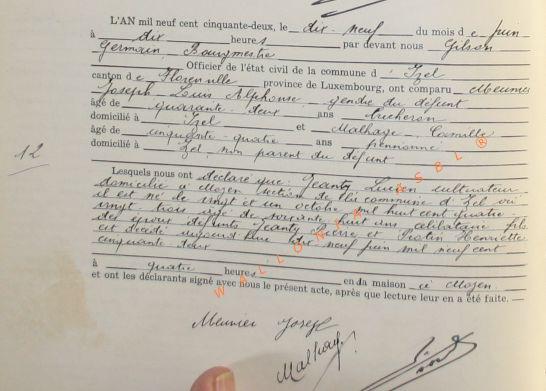 L'AN mil neuf cent cinquante-deux, le dix-neuf du mois de juin
à dix heures par devant nous Gilson
Germain, Bourgmestre
Officier de l'état civil de la commune d'Izel
canton de Florenville province de Luxembourg, ont comparu Meunier
Joseph Louis Alphonse, gendre du défunt
âgé de quarante-deux ans bucheron
domicilié à Izel et Malhage Camille
âgé de cinquante-quatre ans pensionné
domicilié à Izel, non parent du défunt
12
Lesquels nous ont déclaré que Jeanty Lucien cultivateur
domicilié à Moyen section de la commune d'Izel où
il est né le vingt et un octobre mil huit cent quatre
vingt trois âgé de soixante huit ans célibataire fils
des époux défunts Jeanty Pierre et Henriette
est décédé aujourd'hui dix neuf juin mil neuf cent
cinquante deux
à quatre heures en da maison à Moyen.
et ont les déclarants signé avec nous le présent acte, après que lecture leur en a été faite.
WALLONIA ASBL ®
Meunier Joseph
Malhage